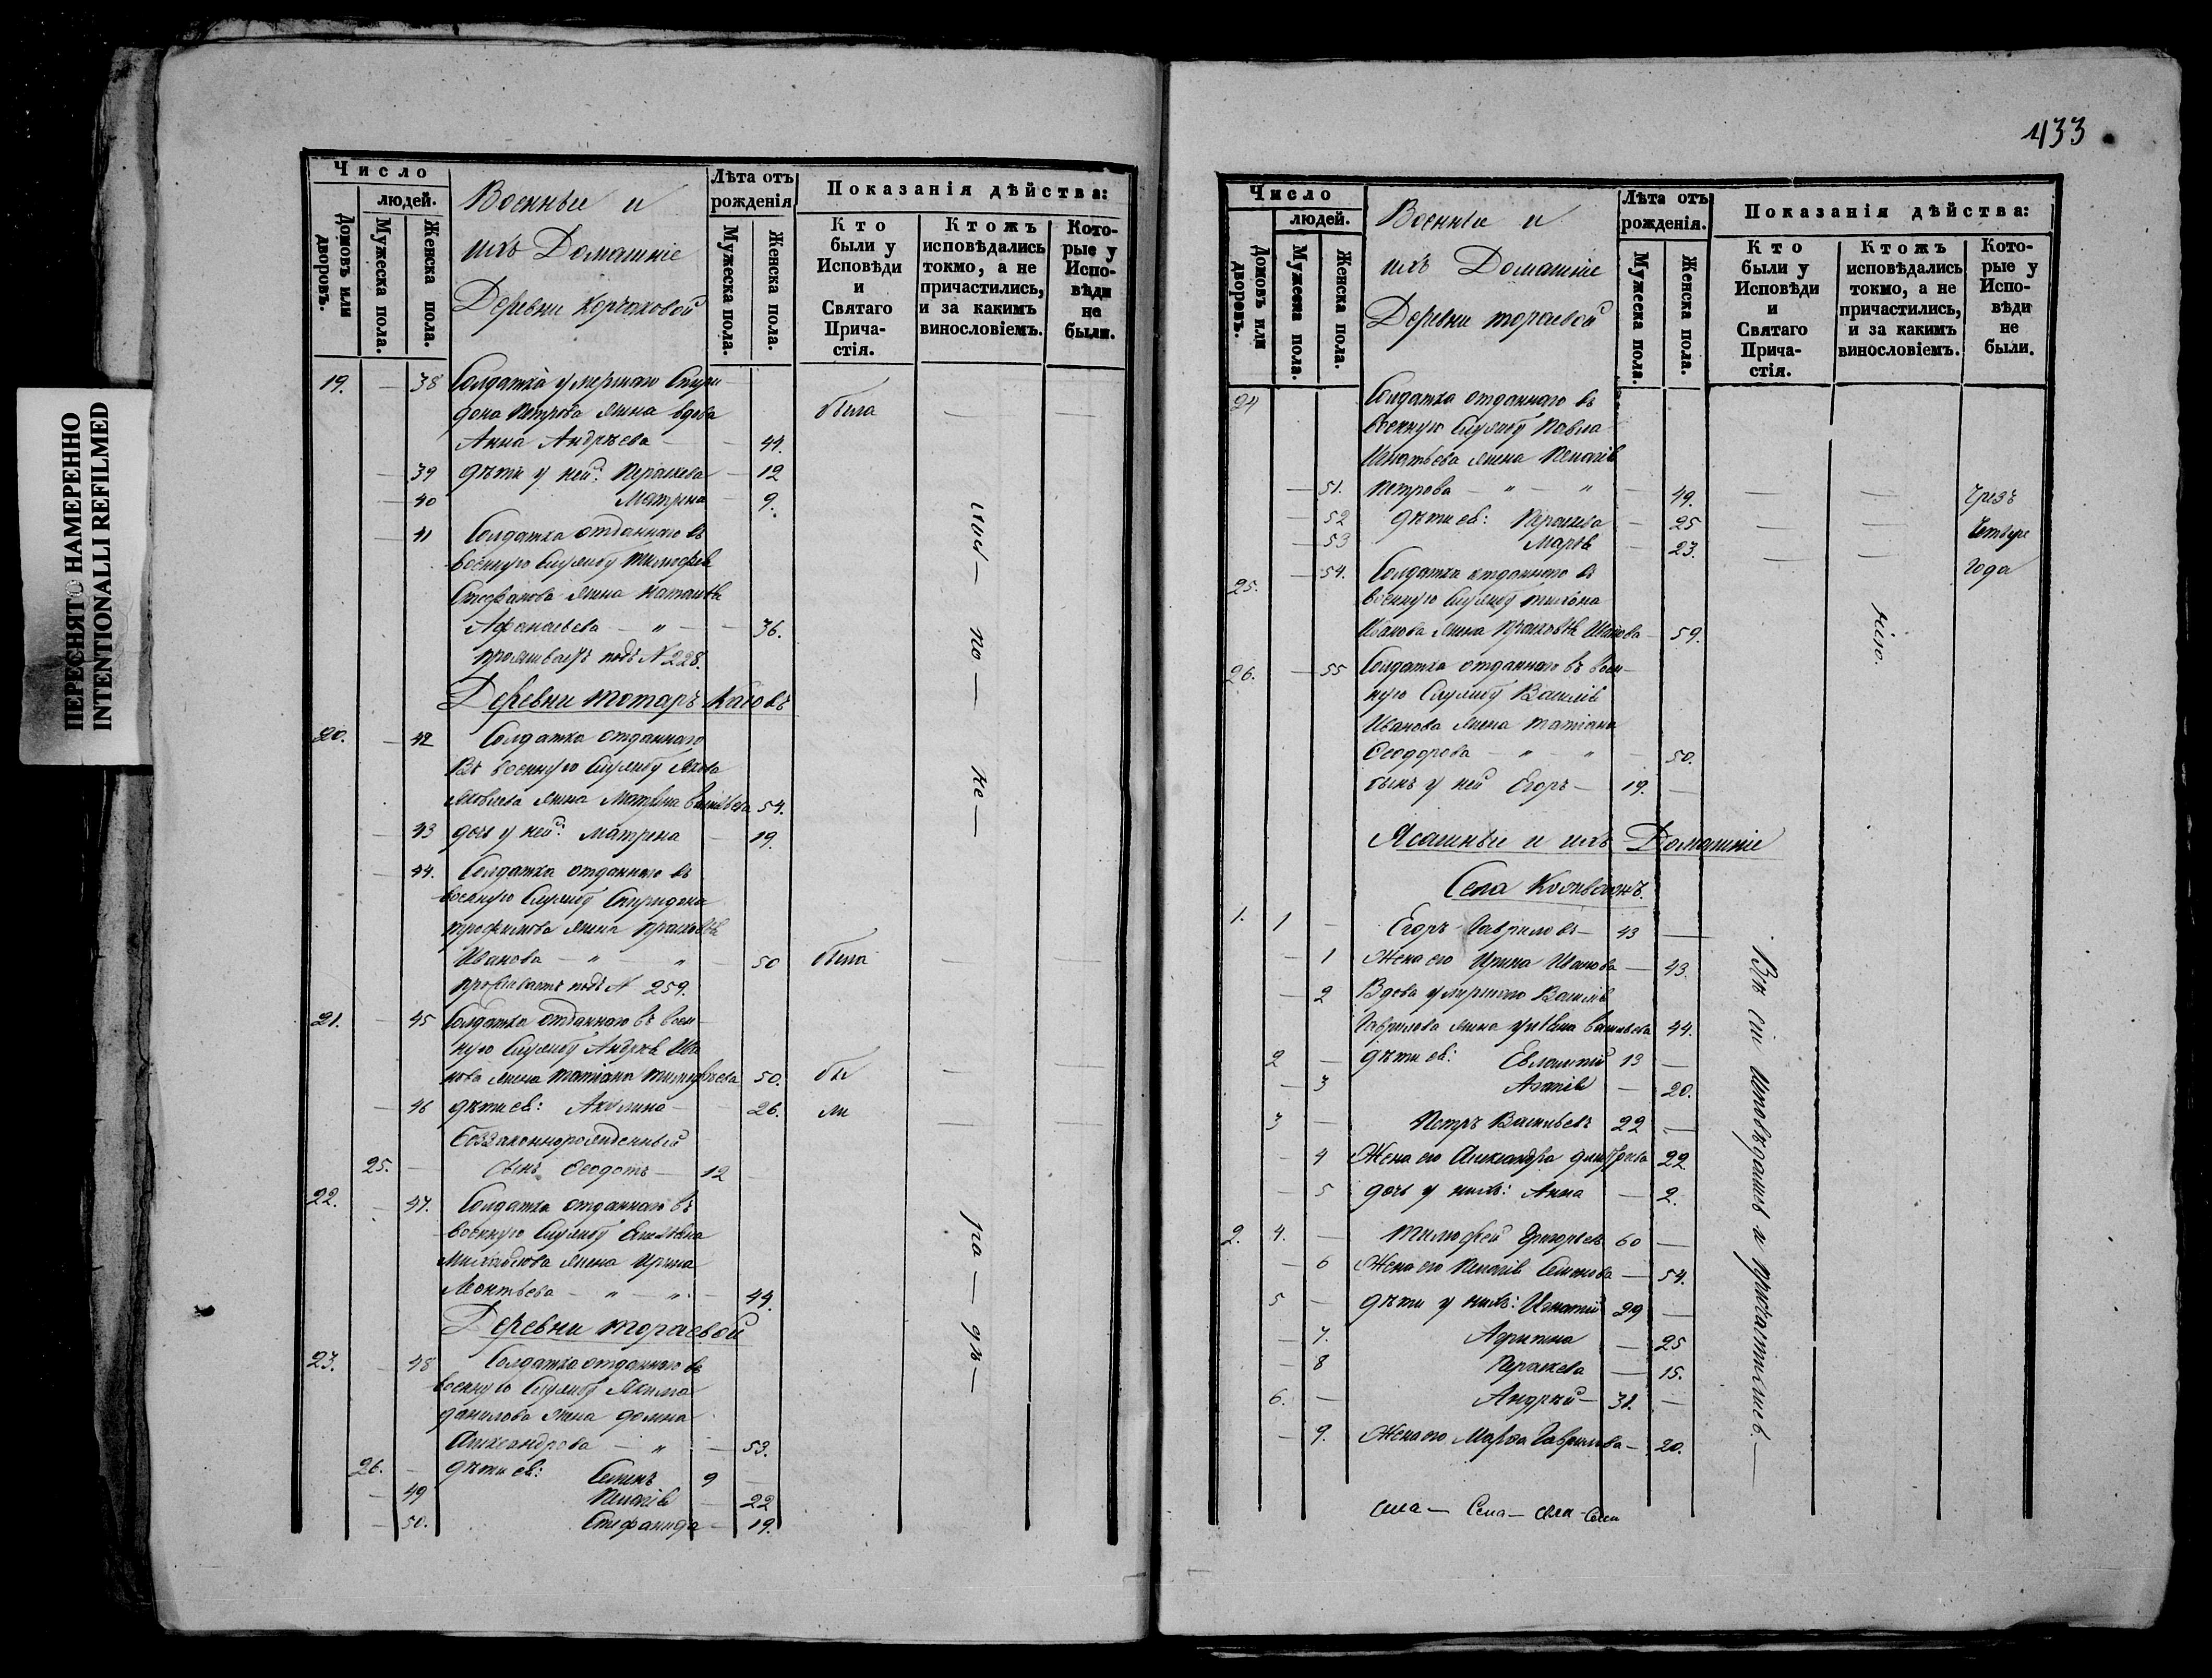 ПЕРЕСНЯТО НАМЕРЕННО
INTENTIONALLI REFILMED
Число
людей.
Домовъ или дворовъ.
Мужеска пола.
Женска пола.
Военные и
ихъ Домашніе
Деревни
Лѣта отъ рожденія
Мужеска пола.
Женска пола.
Показанія дѣйства:
Кто были у Исповѣди и Святаго Прича-стія.
Ктожъ исповѣдались токмо, а не причастились, и за какимъ винословіемъ.
Кото-рые у Испо-вѣди не были.
19. — 38 Солдатка умершаго Спири-
дона Петрова жена вдова была — —
Анна Андрѣева — 44.
— 39 дѣти у ней: Парасковва — 12
— 40 Матрена — 9.
— 41 Солдатка отданнаго въ
военную Службу Тимофея
Стефанова жена Наталья
Афанасьева — " — 36.
проживаетъ подъ № 228.
Деревни
20. — 42 Солдатка отданнаго
Въ военную Службу Якова
Яковлева жена Матрена Васильева 54.
— 43 дочь у ней: Матрена — 19.
— 44. Солдатка отданнаго въ
военную Службу Спиридона
Трофимова жена
Иванова — " — " — 50 была — —
проживаетъ подъ № 259.
21. — 45 Солдатка отданнаго въ воен-
ную Службу Андрея Ива
нова жена Татіана Тимофѣева 50. бы — —
— 46 дѣти ея: Акулина — 26. ли — —
Беззаконнорожденный
25. — сынъ Ѳеодотъ — 12 —
22. — 47. Солдатка отданнаго въ
военную Службу
Михайлова жена Ирина
Леонтьева — " — " — 44.
Деревни Тораевой
23. — 48 Солдатка отданнаго въ
военную Службу Якима
Данилова жена Домна
Александрова — " — 53.
26. — дѣти ея: Семенъ 9 —
— 49 Пелагія — 22
— 50. Стефанида — 19.
по — не — ра — дѣ —
433
Число
людей.
Домовъ или дворовъ.
Мужеска пола.
Женска пола.
Военные и
ихъ Домашніе
Деревни Тораевой
Лѣта отъ рожденія.
Мужеска пола.
Женска пола.
Показанія дѣйства:
Кто были у Исповѣди и Святаго Прича-стія.
Ктожъ исповѣдались токмо, а не причастились, и за какимъ винословіемъ.
Кото-рые у Испо-вѣди не были.
24 Солдатка отданнаго въ
военную Службу Павла
Игнатьева жена Пелагія
— 51. Петрова — " — " — 49. — — чрезъ
— 52 дѣти ея: — 25 — — Четыре
— 53 Марѳа — 23. — — Года
25. — 54. Солдатка отданнаго въ
военную Службу Тихона
Иванова жена Иванова — 59.
нію.
26. — 55 Солдатка отданнаго въ воен-
ную Службу Василія
Иванова жена Татіана
Ѳеодорова — " — " — 50.
сынъ у ней Егоръ — 19. —
Ясашные и ихъ Домашніе
Села
1. 1 — Егоръ Гавриловъ — 43 —
— 1 Жена его Ирина Иванова — 43.
— 2 Вдова умершаго Василія
Гаврилова жена Васильева 44.
2 — дѣти ея: Евлампій 13 —
— 3 Агапія — 20.
3 — Петръ Васильевъ 22 —
— 4 Жена его Александра Дмитріева 22
— 5 дочь у нихъ: Анна — 2.
2. 4. — Тимофей Григорьевъ 60 —
— 6 Жена его Пелагія Семенова — 54.
5 — дѣти у нихъ: Игнатій 29 —
— 7. Агрипина — 25
— 8 — 15.
6. — Андрей — 31. —
— 9. Жена его Марѳа Гаврилова — 20.
Всѣ сіи исповѣдались и пріобщились. —
Села — Села — Села — Села